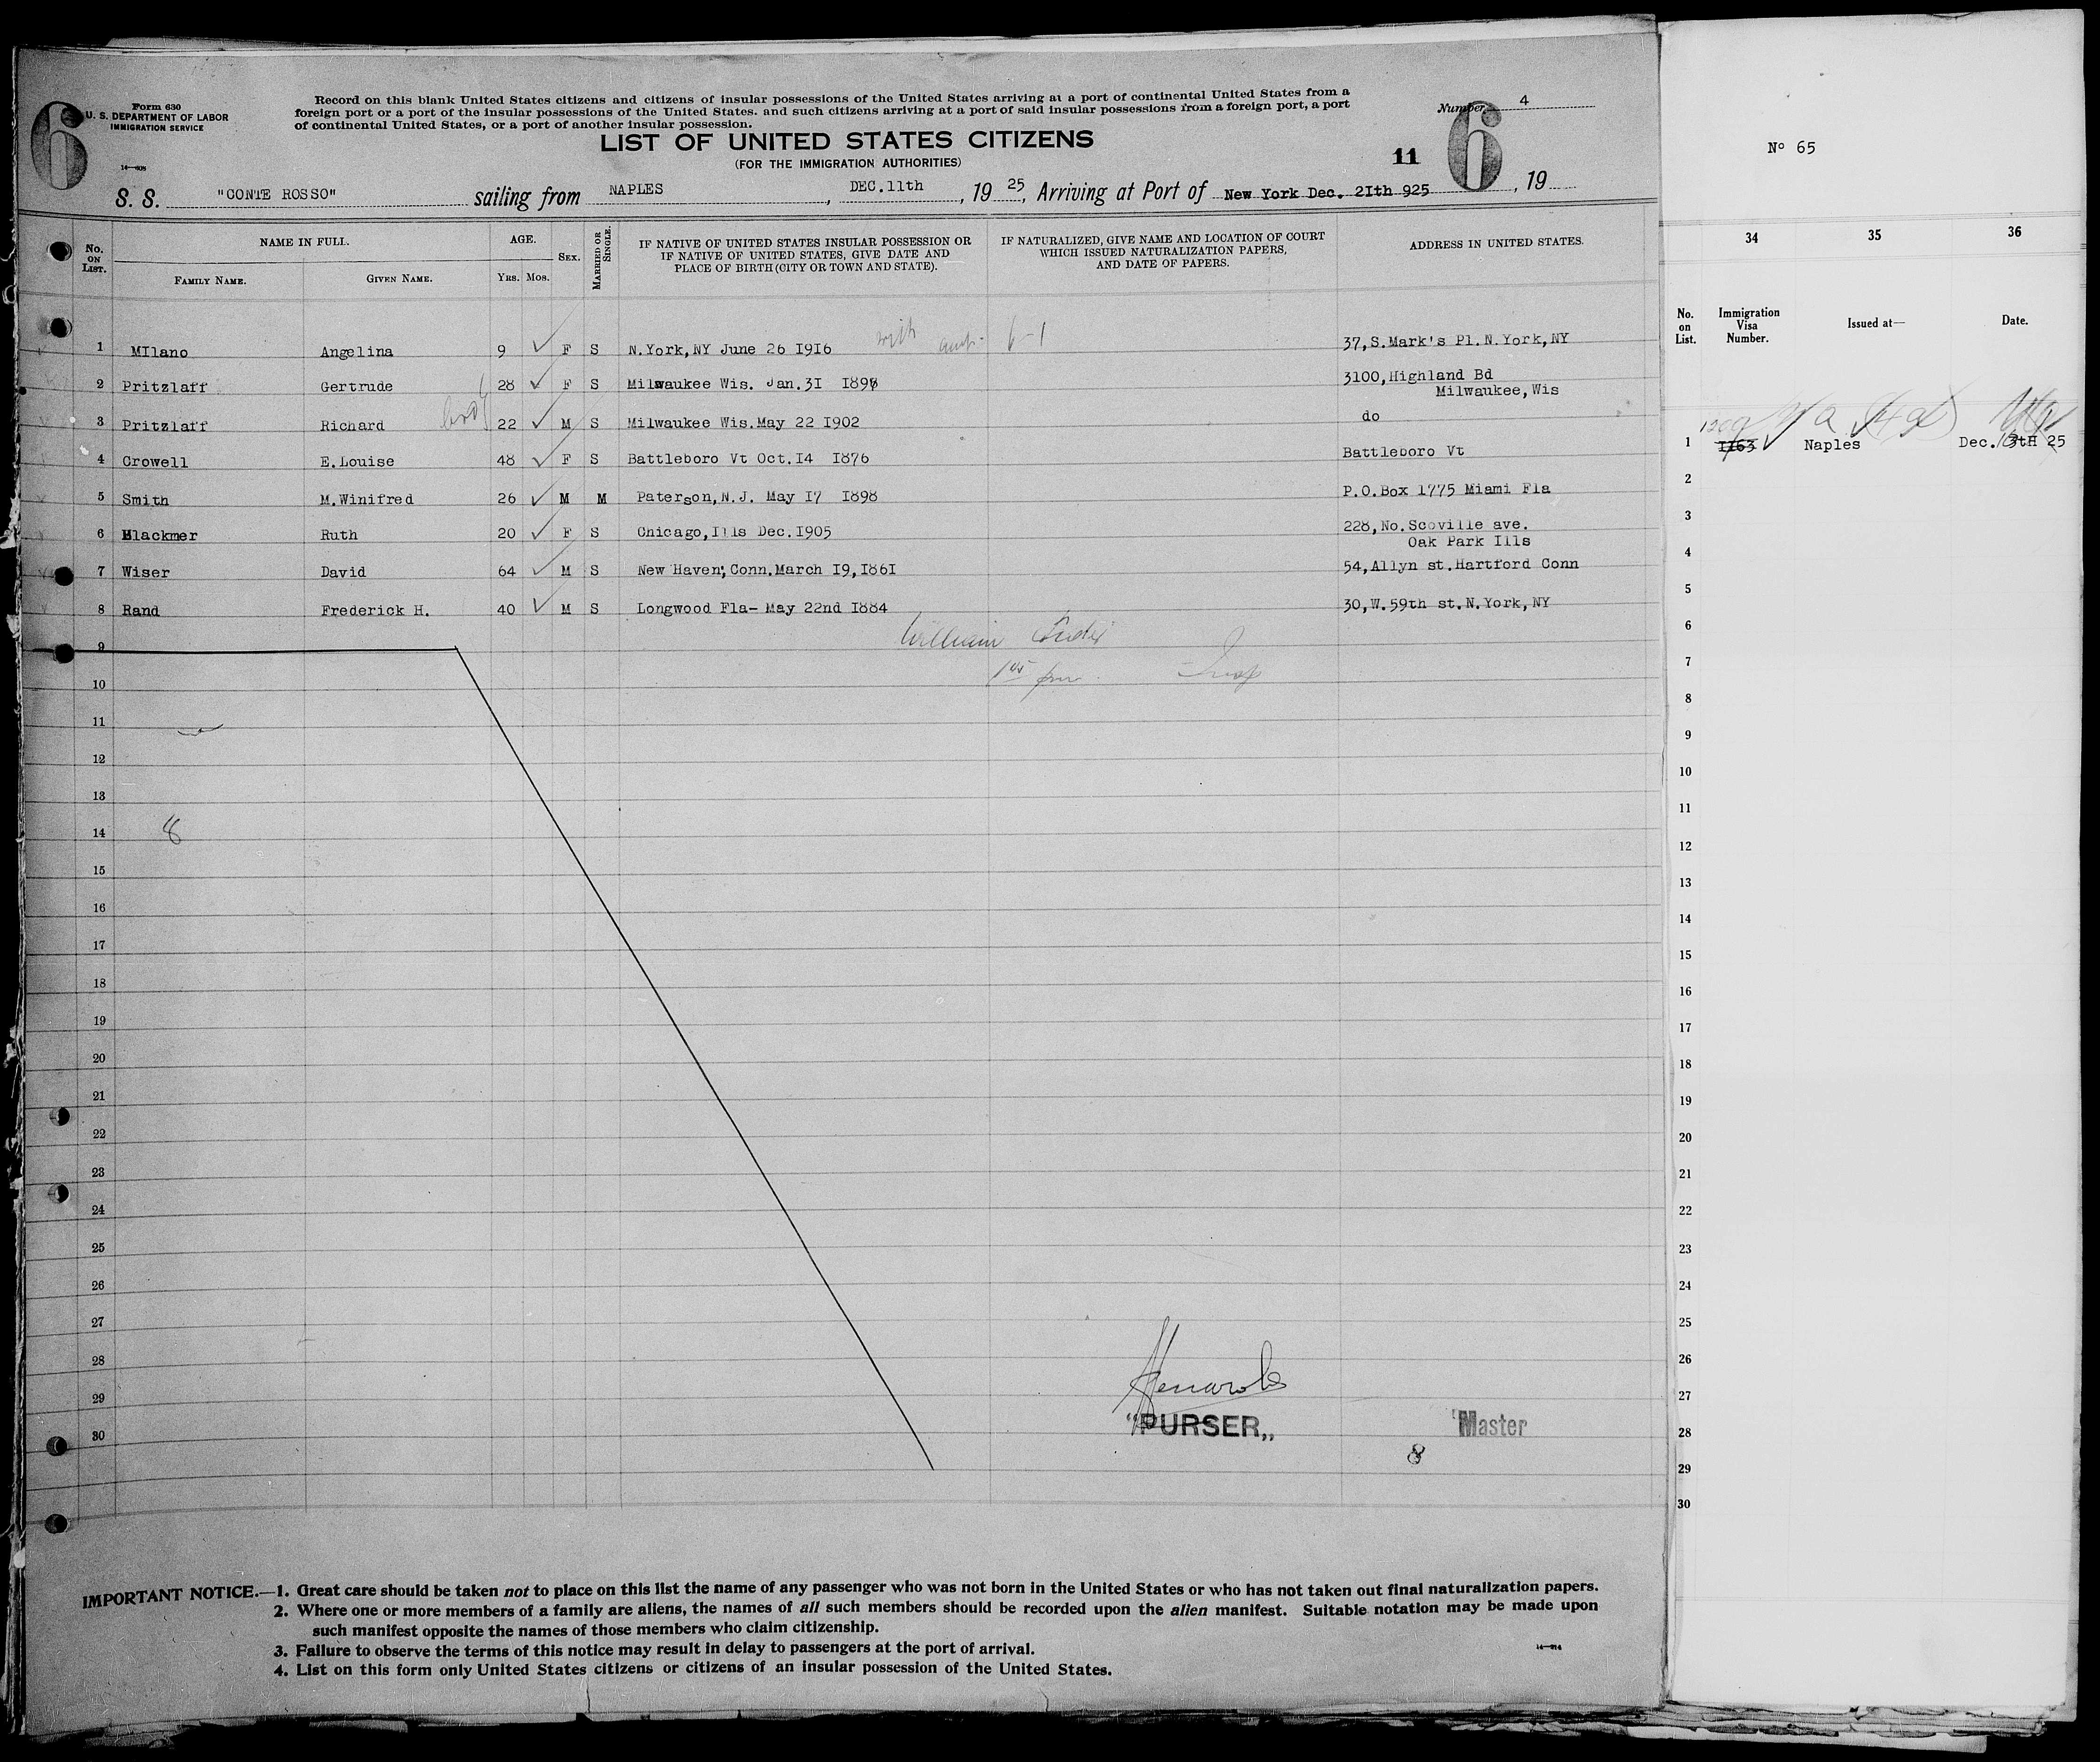 6
Form 630
U. S. DEPARTMENT OF LABOR
IMMIGRATION SERVICE
14—608
Record on this blank United States citizens and citizens of insular possessions of the United States arriving at a port of continental United States from a
foreign port or a port of the insular possessions of the United States. and such citizens arriving at a port of said insular possessions from a foreign port, a port
of continental United States, or a port of another insular possession.
Number 4
LIST OF UNITED STATES CITIZENS
(FOR THE IMMIGRATION AUTHORITIES)
11 6
S. S. "CONTE ROSSO" sailing from NAPLES, DEC.11th, 19 25, Arriving at Port of New York Dec. 2Ith 925, 19
No. ON LIST. NAME IN FULL. FAMILY NAME. GIVEN NAME. AGE. YRS. MOS. SEX. MARRIED OR SINGLE. IF NATIVE OF UNITED STATES INSULAR POSSESSION OR IF NATIVE OF UNITED STATES, GIVE DATE AND PLACE OF BIRTH (CITY OR TOWN AND STATE). IF NATURALIZED, GIVE NAME AND LOCATION OF COURT WHICH ISSUED NATURALIZATION PAPERS, AND DATE OF PAPERS. ADDRESS IN UNITED STATES.
1 MIlano Angelina 9 F S N.York,NY June 26 I9I6 with 6-1 37,S.Mark's Pl.N.York,NY
2 Pritzlaff Gertrude 28 F S Milwaukee Wis. Jan.3I 3100,Highland Bd
Milwaukee,Wis
3 Pritzlaff Richard 22 M S Milwaukee Wis.May 22 I902 do
4 Crowell E.Louise 48 F S Battleboro Vt Oct.I4 I876 Battleboro Vt
5 Smith M.Winifred 26 M M Paterson,N.J. May I7 I898 P.O.Box 1775 Miami Fla
6 Blackmer Ruth 20 F S Chicago,Ills Dec.I905 228,No.Scoville ave.
Oak Park Ills
7 Wiser David 64 M S New Haven, Conn.March I9,I86I 54,Allyn st.Hartford Conn
8 Rand Frederick H. 40 M S Longwood Fla- May 22nd I884 30,W.59th st.N.York,NY
9 William
10 Insp
11
12
13
14 8
15
16
17
18
19
20
21
22
23
24
25
26
27
28
29
30
"PURSER„ Master
8
IMPORTANT NOTICE.—1. Great care should be taken not to place on this list the name of any passenger who was not born in the United States or who has not taken out final naturalization papers.
2. Where one or more members of a family are aliens, the names of all such members should be recorded upon the alien manifest. Suitable notation may be made upon
such manifest opposite the names of those members who claim citizenship.
3. Failure to observe the terms of this notice may result in delay to passengers at the port of arrival.
4. List on this form only United States citizens or citizens of an insular possession of the United States.
Nº 65
34 35 36
No. on List. Immigration Visa Number. Issued at— Date.
1 II63 Naples Dec. 25
2
3
4
5
6
7
8
9
10
11
12
13
14
15
16
17
18
19
20
21
22
23
24
25
26
27
28
29
30